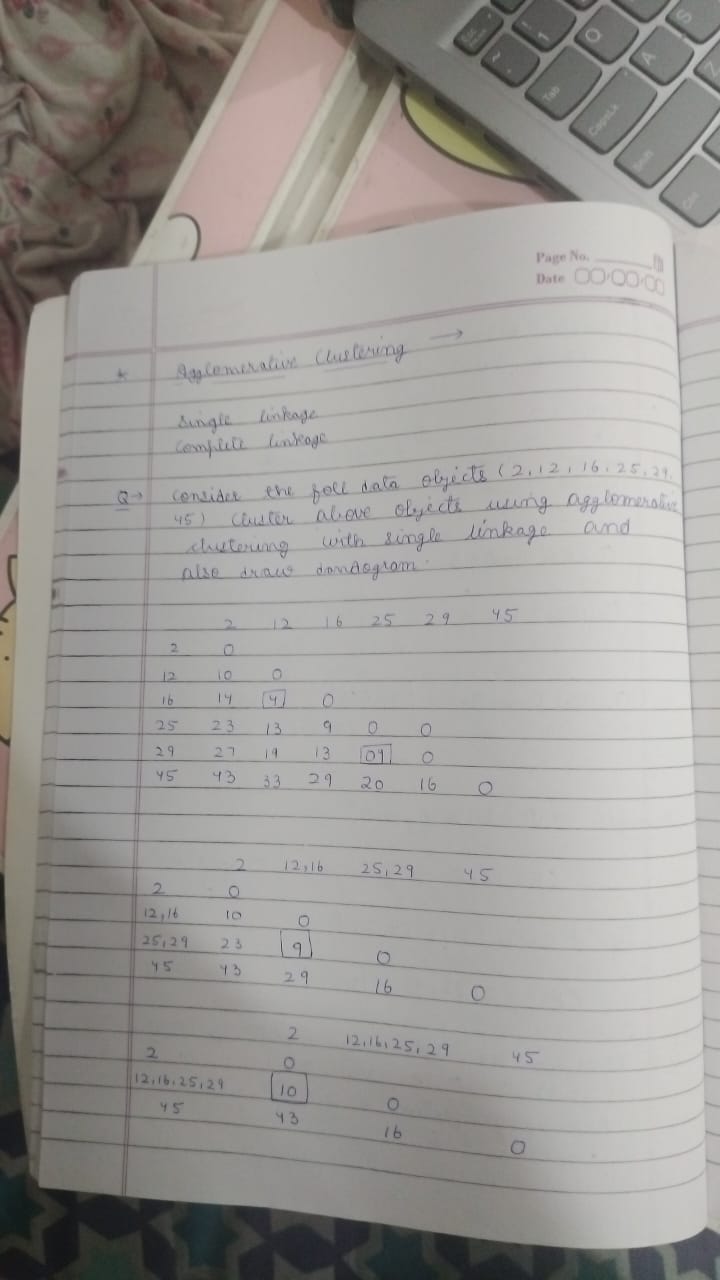 Esc
~
! 1
Q
A
S
Z
Tab
CapsLk
Shift
Ctrl
Page No.
Date
* Agglomerative Clustering →
Single linkage
Complete linkage
Q→ Consider the foll data objects (2, 12, 16, 25, 29,
45) Cluster above objects using agglomerative
clustering with single linkage and
also draw dendogram.
2 12 16 25 29 45
2 0
12 10 0
16 14 4 0
25 23 13 9 0 0
29 27 19 13 04 0
45 43 33 29 20 16 0
2 12,16 25,29 45
2 0
12,16 10 0
25,29 23 9 0
45 43 29 16 0
2 12,16,25,29 45
2 0
12,16,25,29 10 0
45 43 16 0